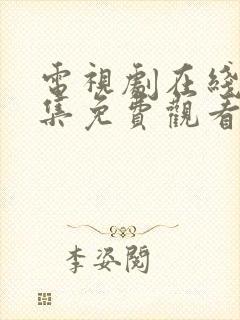 電視劇在綫
集免費觀看
李姿閱